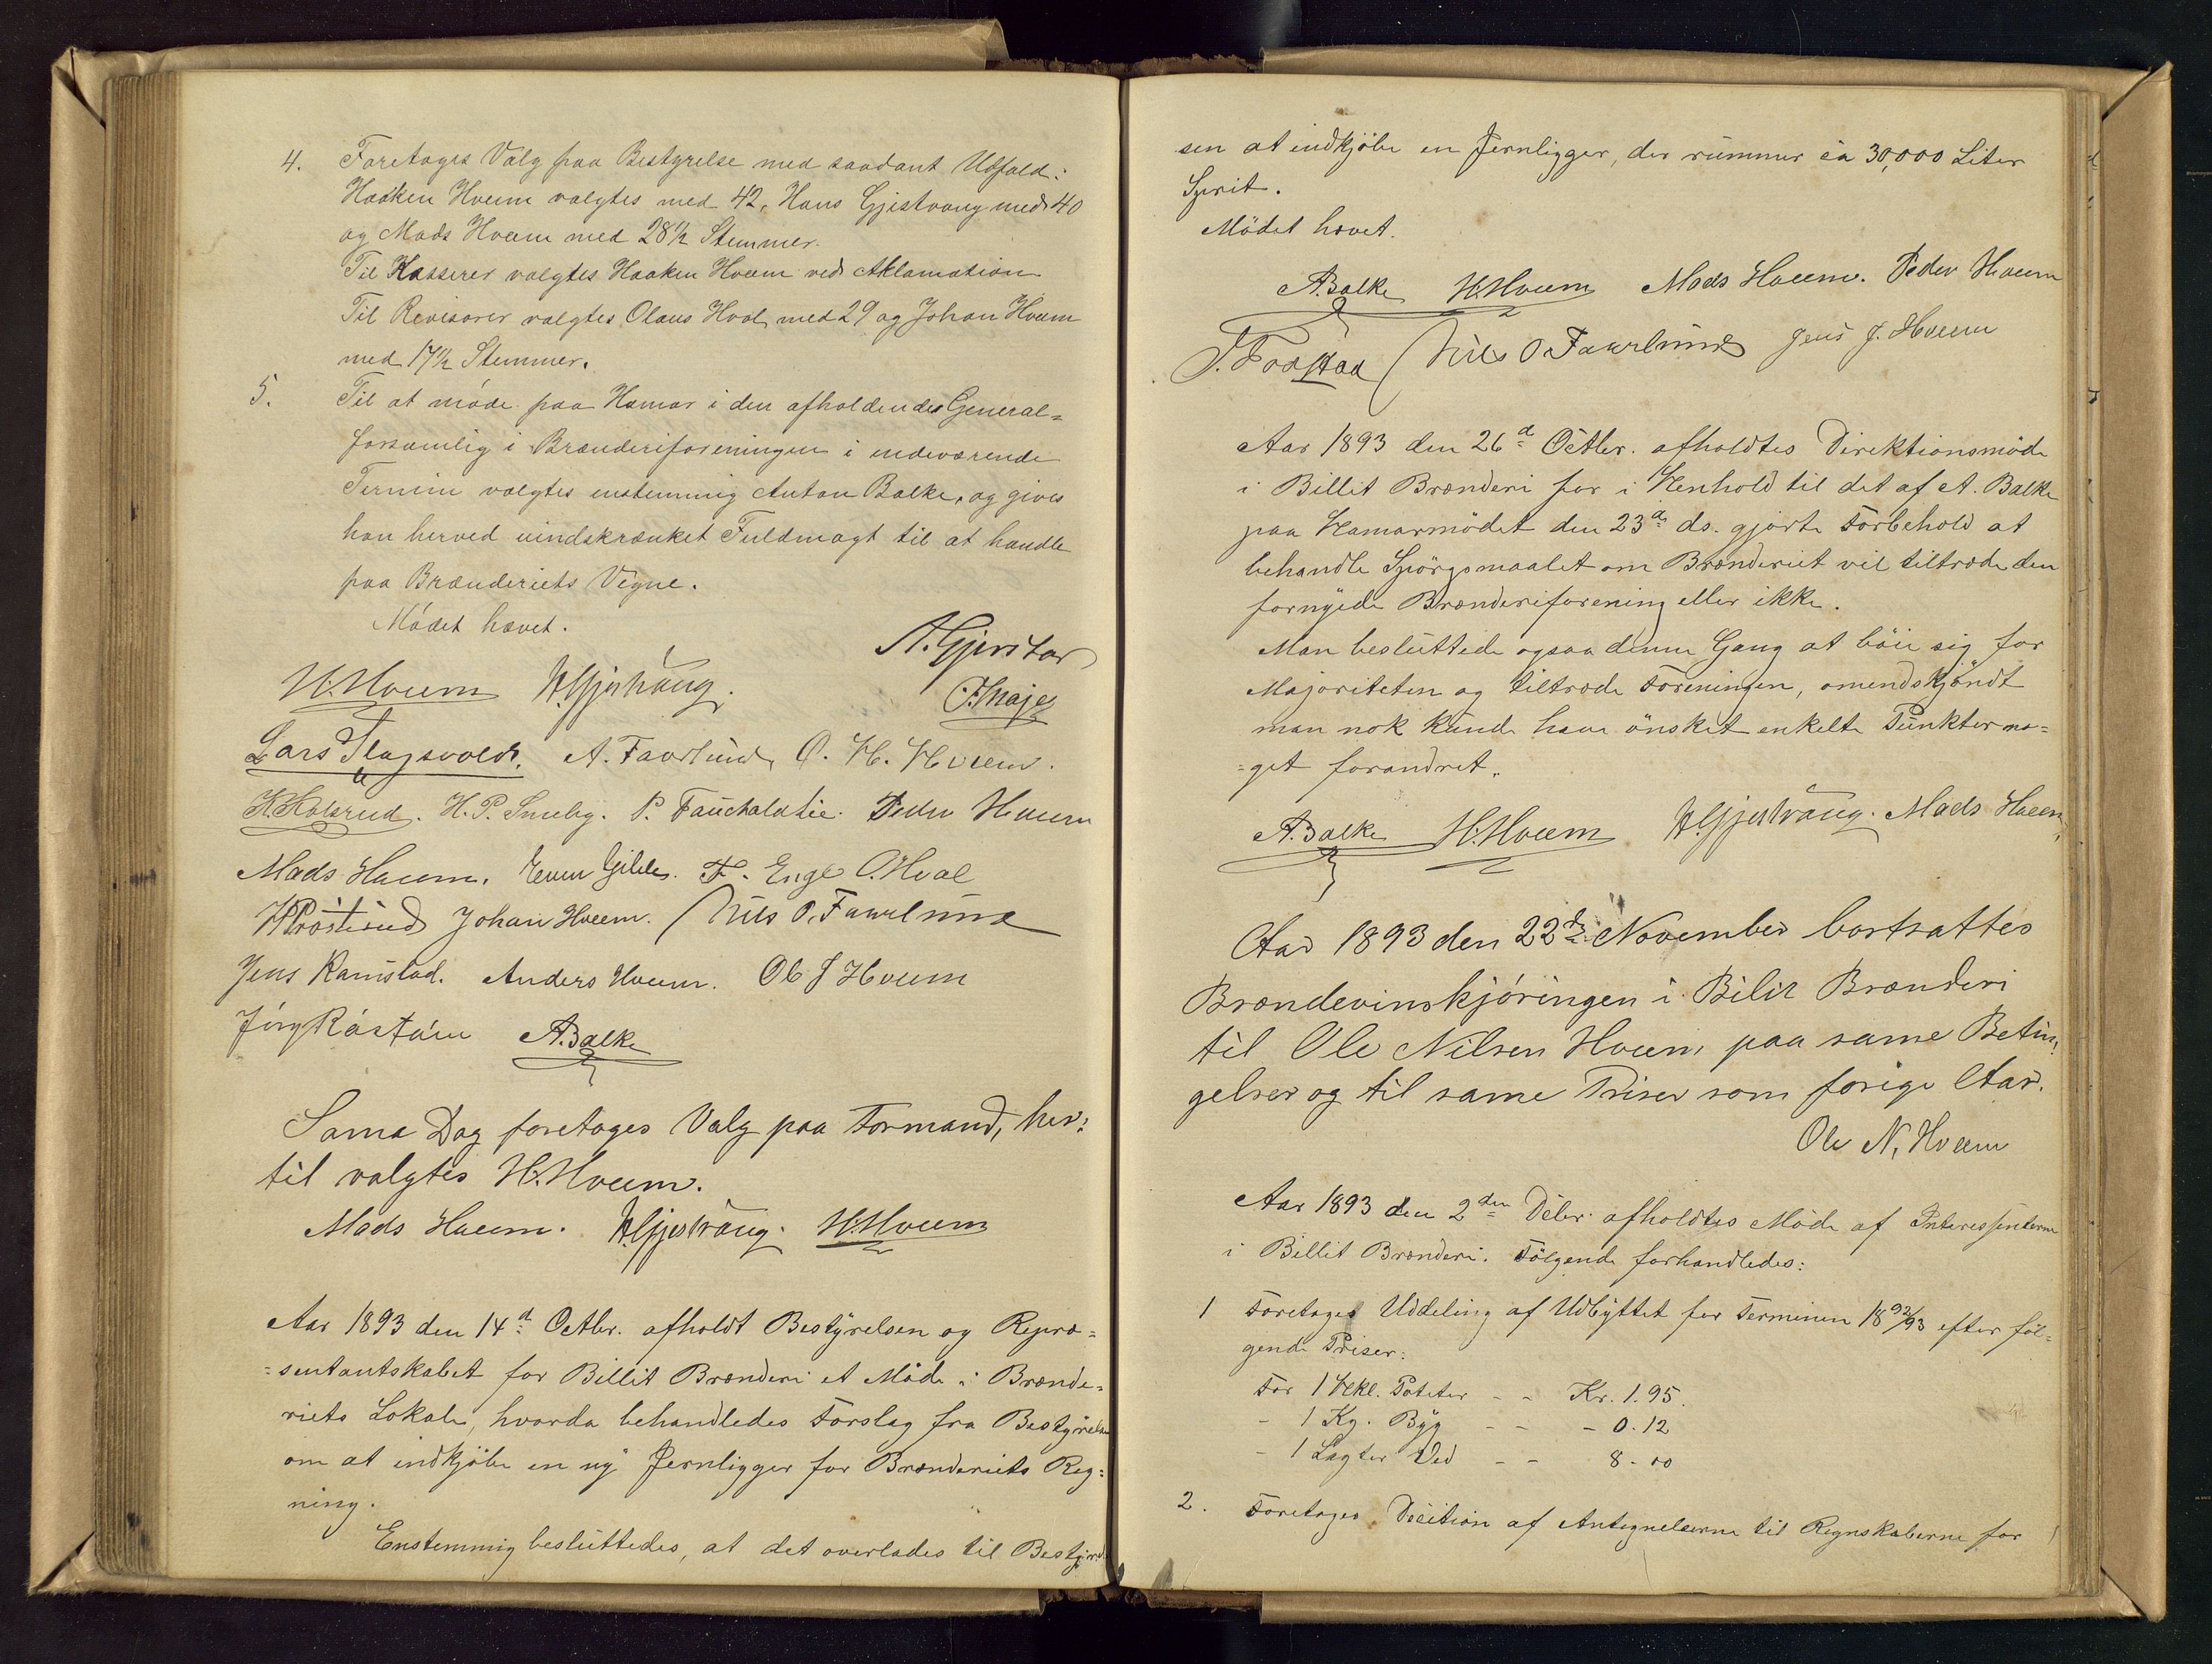 4. Foretages Valg paa Bestyrelse med saadant Udfald:
Haaken Hveem valgtes med 42, Hans Gjestvang med 40
og Mads Hveem med 28½ Stemmer.
Til Kasserer valgtes Haaken Hveem ved Aklamation
Til Revisorer valgtes Olaus Hval med 29 og Johan Hveem
med 17½ Stemmer.
5. Til at møde paa Hamar i den afholdendes General=
forsamlig i Brænderiforeningen i indeværende
Termin valgtes enstemmig Anton Balke, og gives
han herved uindskrænket Fuldmagt til at handle
paa Brænderiets Vegne.
Mødet hævet.
H. Hveem H. Gjestvang.
Lars Slagsvold. A. Faarlund, O. H. Hveem.
K. Kolsrud. H. P. Smeby. P. Fauchaldlie. Peder Hveem
Mads Hveem. Even Gihle. F. Enge O. Hval
Johan Hveem. Nils O. Faarlund
Jens Ramstad. Anders Hveem. Ole J Hveem
A. Balke
Sama Dag foretages Valg paa Formand, her=
til valgtes H. Hveem.
Mads Hveem. H. Gjestvang. H. Hveem
Aar 1893 den 14d Octbr. afholdt Bestyrelsen og Repræ=
=sentantskabet for Billit Brænderi et Møde i Brænde=
riets Lokale, hvorda behandledes Forslag fra Bestyrelsen
om at indkjøbe en ny Jernligger for Brænderiets Reg=
ning.
Enstemmig besluttedes, at det overlades til Bestyrel
sen at indkjøbe en Jernligger, der rummer ca 30,000 Liter
Sprit.
Mødet hævet.
A. Balke H. Hveem Mads Hveem. Peder Hveem
Nils O. Faarlund Jens J. Hveem
Aar 1893 den 26d Octbr. afholdtes Direktionsmøde
i Billit Brænderi for i Henhold til det af A. Balke
paa Hamarmødet den 23d ds. gjorte Forbehold at
behandle Spørgsmaalet om Brænderiet vil tiltræde den
fornyede Brænderiforening eller ikke.
Man besluttede ogsaa denne Gang at bøie sig for
Majoriteten og tiltræde Foreningen, omendskjøndt
man nok kunde have ønsket enkelte Punkter no=
=get forandret.
A. Balke H. Hveem H. Gjestvang. Mads Hveem
Aar 1893 den 22d November bortsattes
Brændevinskjøringen i Bilit Brænderi
til Ole Nilsen Hveem paa same Betin
gelser og til same Priser som forige Aar.
Ole N. Hveem
Aar 1893 den 2den Debr. afholdtes Møde af Interessenterne
i Billit Brænderi. Følgende forhandledes:
1 Foretages Uddeling af Udbyttet for Terminen 1892/93 efter føl=
gende Priser:
For 1 Hekl. Poteter - - Kr. 1.95.
- 1 Kg. Byg - - - 0.12
- 1 Lagter Ved - - 8.00
2. Foretages Decition af Antegnelserne til Regnskaberne for